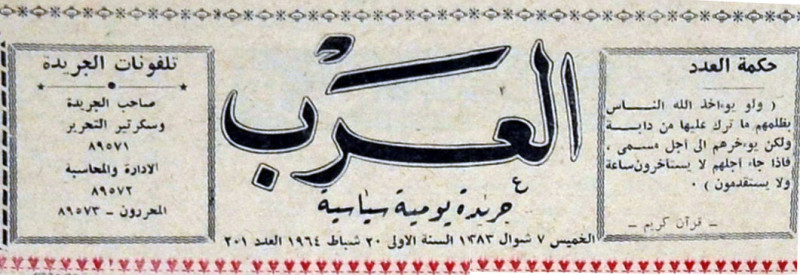 حكمة العدد
( ولو يوءاخذ الله النـاس
بظلمهم ما ترك عليها من دابـة
ولكن يوءخرهم الى اجل مسمى ،
فاذا جاء اجلهم لا يستأخرون ساعة
ولا يستقدمون ) ٠
ـ قرآن كريم ـ
العرب
جريدة يومية سياسية
الخميس ٧ شوال ١٣٨٣ السنة الاولى ٢٠ شباط ١٩٦٤ العدد ٢٠١
تلفونات الجريدة
صاحب الجريدة
وسكرتير التحرير
٨٩٥٧١
الادارة والمحاسبة
٨٩٥٧٢
المحررون ـ ٨٩٥٧٣